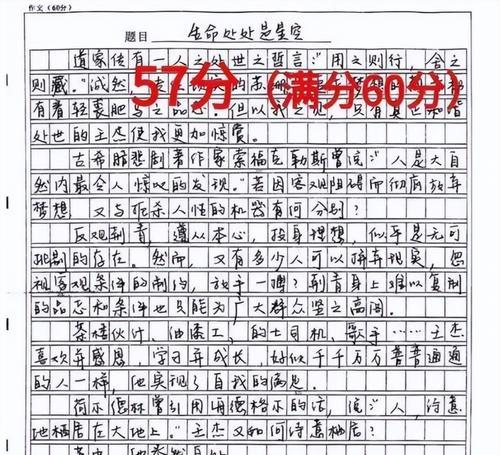 作文(60分)
题目 生命处处是星空
道家传有一人之处世之哲言:"用之则行,舍之
则藏。"诚然,
57分(满分60分)
有着轻裘肥马之品
处世的王杰使我更加惊赏。
古希腊悲剧著作家索福克勒斯曾说:"人是大自
然内最令人惊叹的发现。"若因客观阻碍而彻底放弃
梦想,又与扼杀人性的机器有何分别?
反观荆青,遵从本心,投身理想,似乎是无可
挑剔的存在。然而,又有多少人可以摒弃现实,忽
视客观条件的制约,放手一搏?荆青身上难以复制
的品态和条件也只能为广大群众竖之高阁。
茶楼伙计、油漆工、的士司机、歌手……王杰
喜欢并感恩,学习并成长,好似千千万万普普通通
的人一样,他实现了自我的满足。
荷尔德林曾引用海德格尔的话,说:"人,诗意
地栖居在大地上。"王杰又如何诗意栖居?